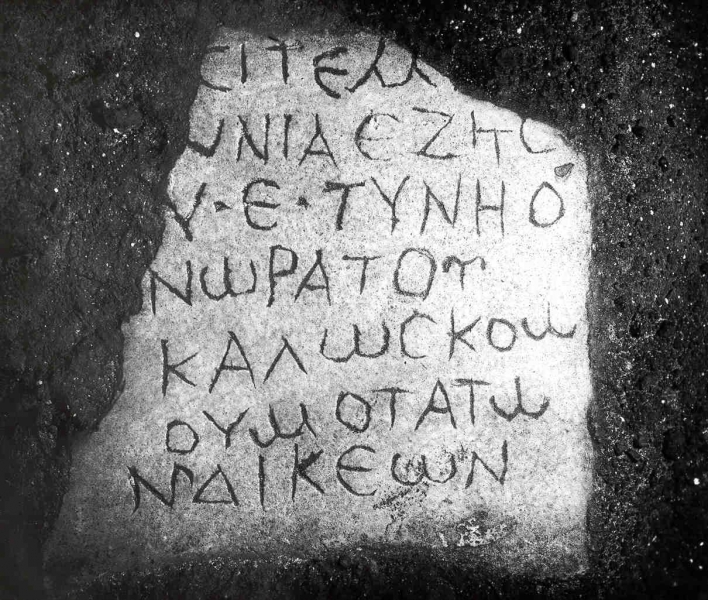 ϹΙΤΕΛΛ
ΥΝΙΑ ΕΖΗϹ
Υ·Ε·ΤΥΝΗΟ
ΝωΡΑΤΟΥ
ΚΑΛωϹΚΟω
ΟΥω ΟΤΑΤω
ΝΔΙΚΕωΝ